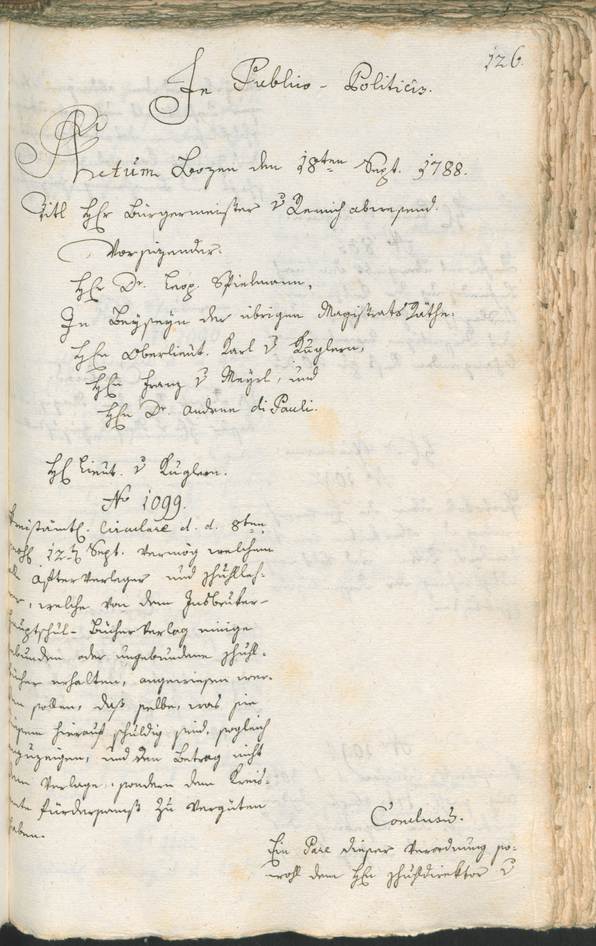 126.
In Publico-Politicis.
Actum Bozen den 18ten Sept. 1788.
Titl Hhr Bürgermeister v Remich abwesend.
Vorsizender.
Hhr Dr. Leop. Spielmann,
In Beyseyn der übrigen Magistrats Räthe.
Hhn Oberlieut. Karl v Kuglern,
Hhn Franz v Mayrl, und
Hhn Dr. Andree di Pauli.
Hh Lieut. v Kuglern.
No 1099.
Kreisämtl. Circulare d. d. 8ten
12t Sept. vermög welchem
alle Afterverleger und Schulleh-
rer, welche von dem Insbruker-
Hauptschul-Bücher Verlag einige
gebunden oder ungebundene Schul-
bücher erhalten, angewiesen wer-
den sollen, daß selbe, was sie
diesem hierauf schuldig sind, sogleich
anzuzeigen, und den Betrag nicht
dem Verlage, sondern dem Kreis-
amte fürdersamst zu vergüten
haben.
Conclusum.
Ein Pare dieser Verordnung so-
wohl dem Hhn Schuldirektor v